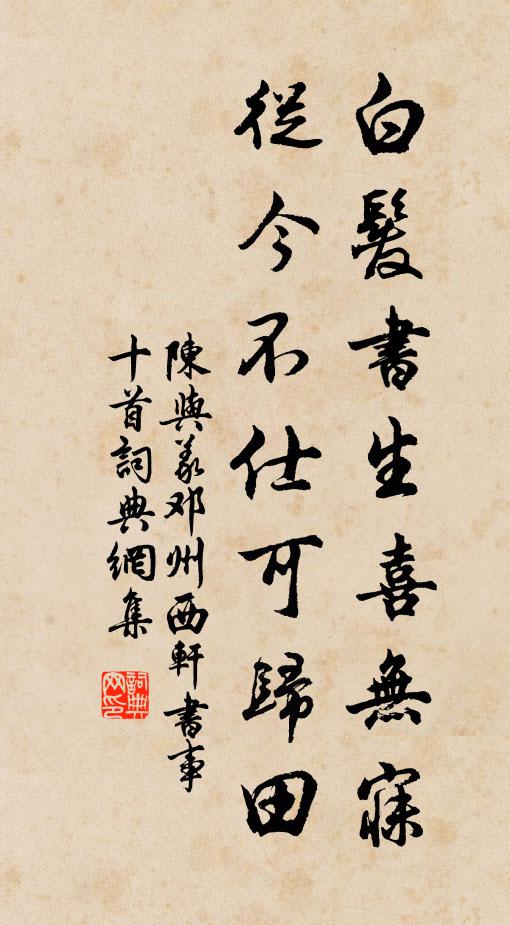 白髮書生喜無寐
從今不仕可歸田
陳與義邓州西軒書事
十首詞典網集
詞典网印